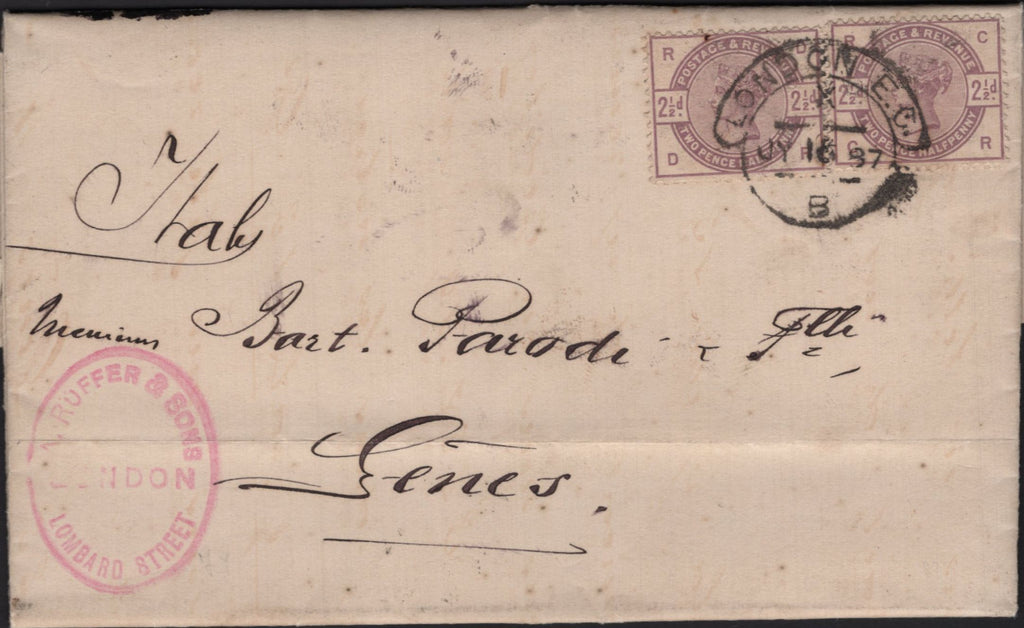 R
POSTAGE & REVENUE
2½d.
2½d.
TWO PENCE HALFPENNY
D
R
C
POSTAGE & REVENUE
2½d.
2½d.
TWO PENCE HALFPENNY
C
R
LONDON E.C.
X
JY 16 87
B
Italy
Messieurs Bart. Parodi & Flli
Gênes.
A. RÜFFER & SONS
LONDON
LOMBARD STREET